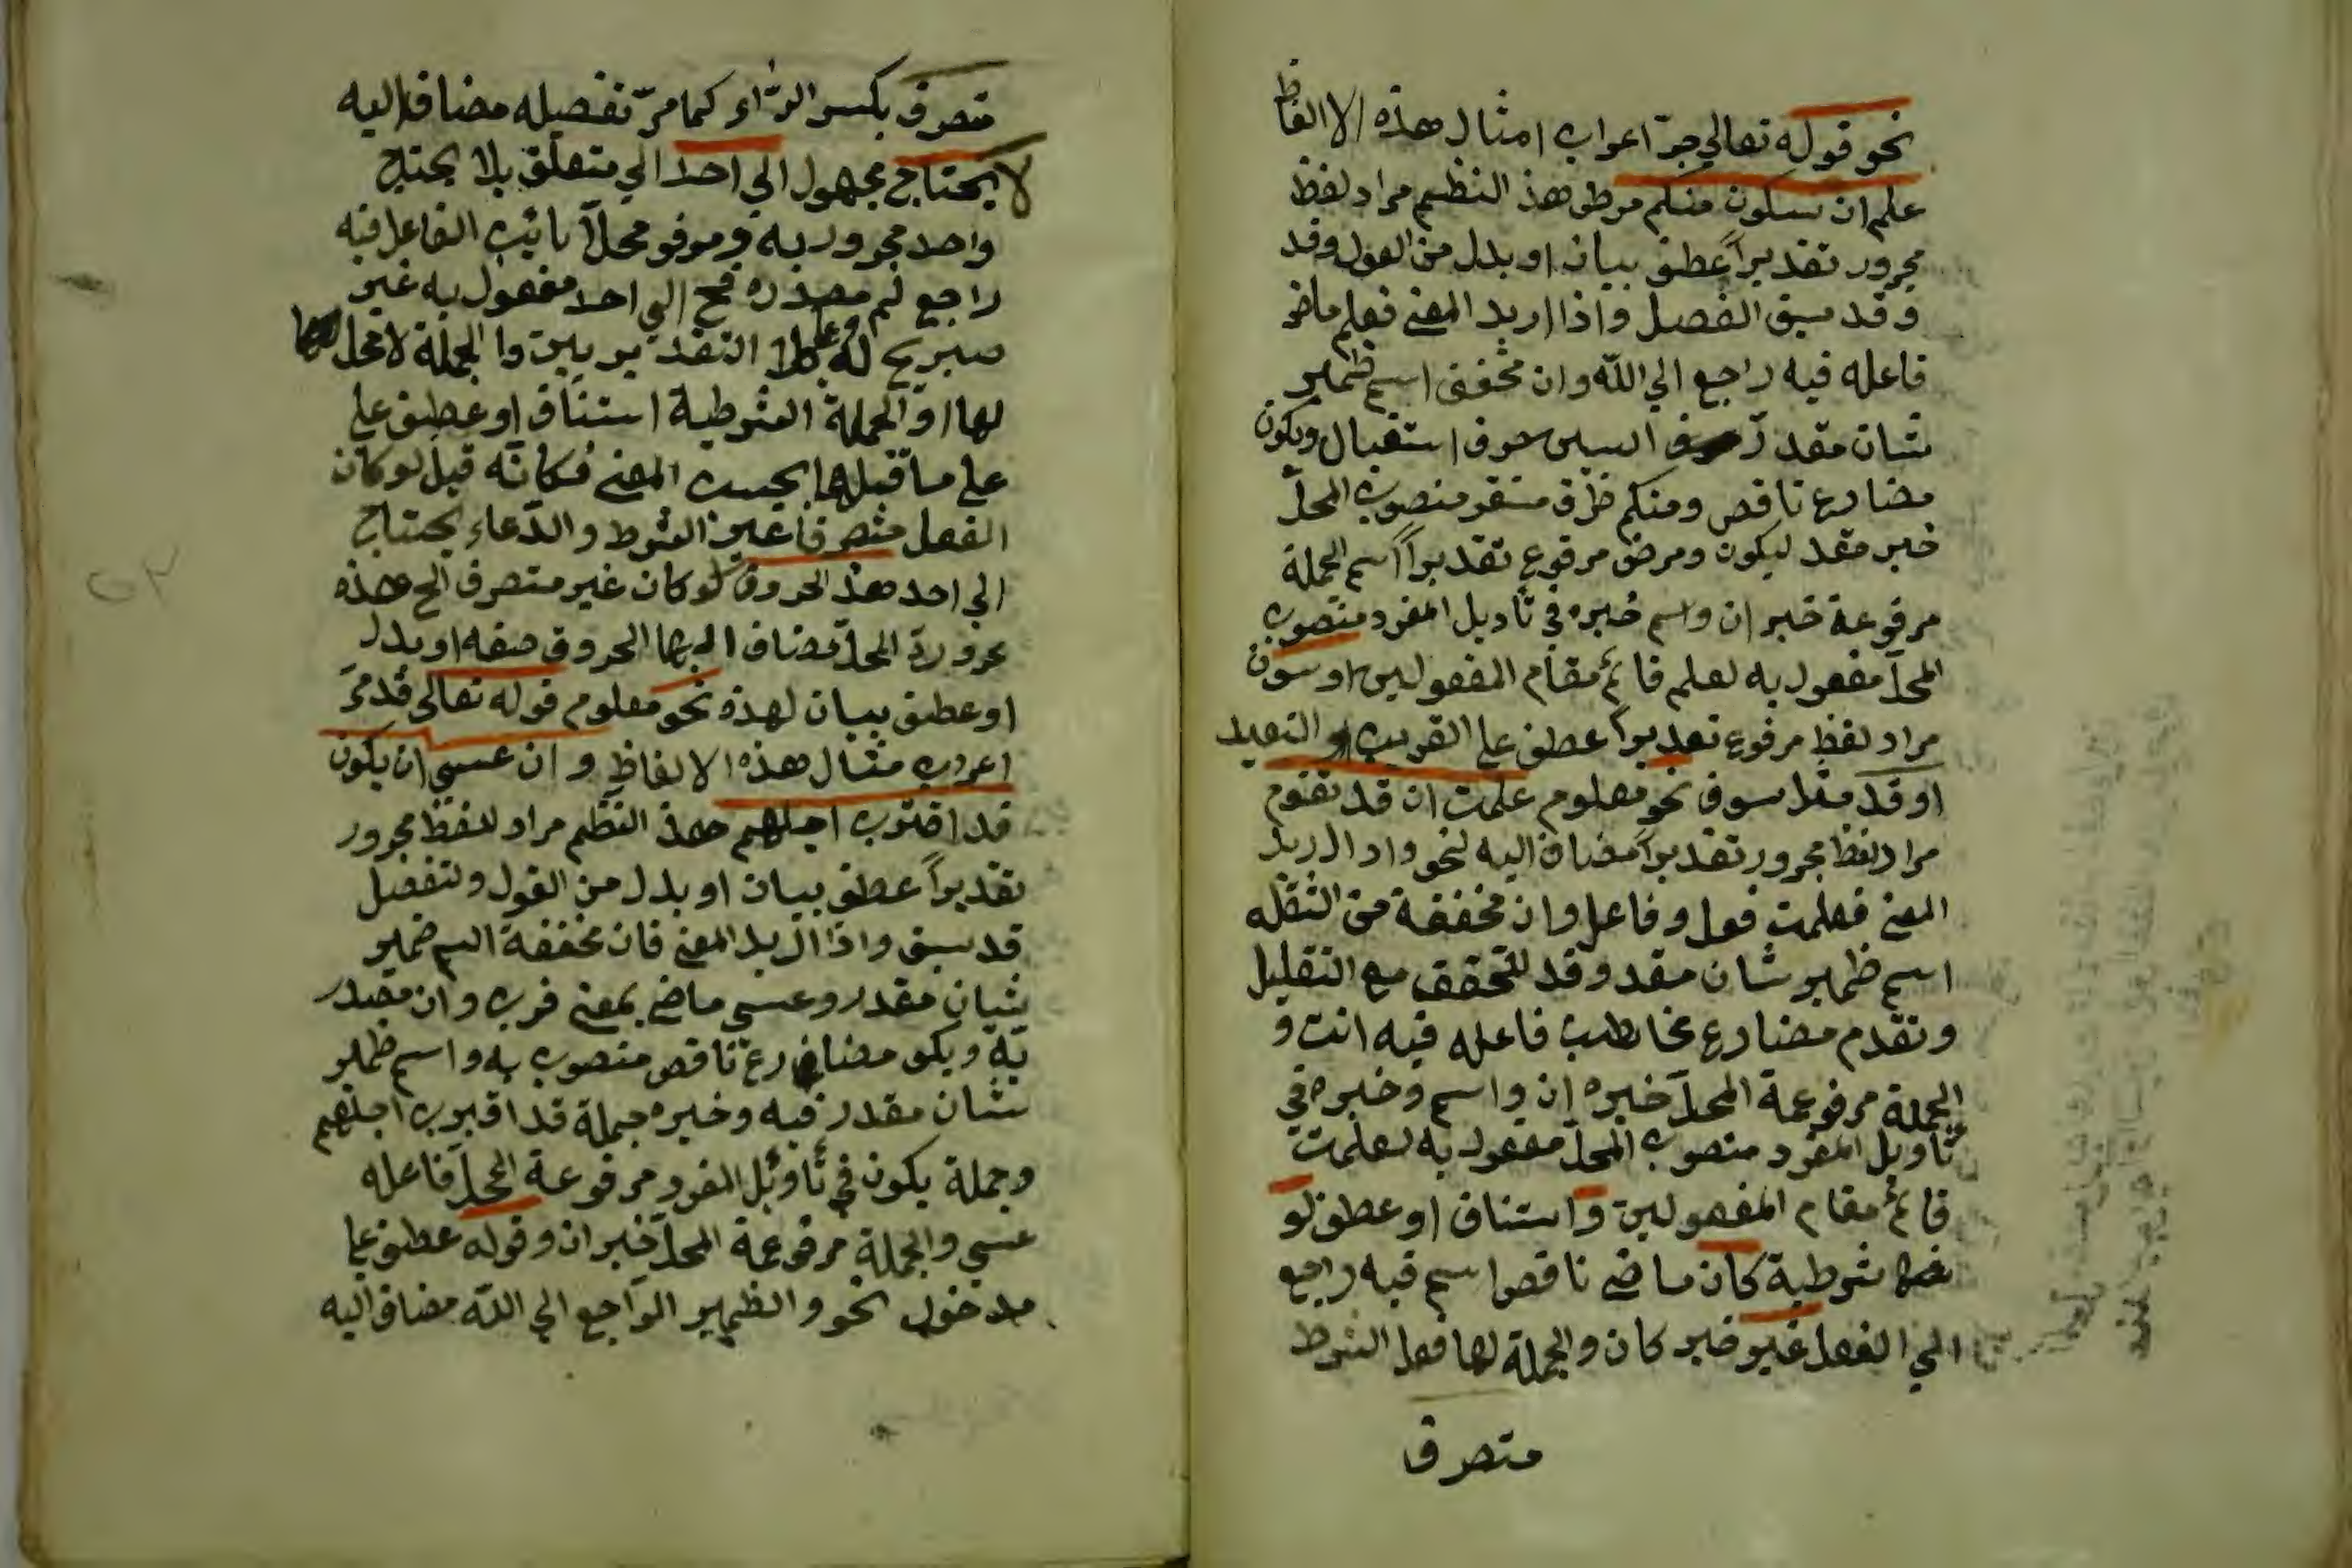 نحو قوله تعالي جرّ اعراب امثال هذه الالفاظ
علم ان سيكون منكم مرضى هذ النظم مراد لفظ
مجرور تقديراً عطف بيان او بدل من القول وقد
وقد سبق الفصيل واذا اريد المعنى فعلم ماض
فاعله فيه راجع الي الله وان مخفف اسم ظمير
شان مقدر السين حرف استقبال ويكون
مضارع ناقص ومنكم ظرف مستقر منصوب المحلّ
خبر مقد ليكون ومرضى مرفوع تقديراً اسم الجملة
مرفوعة خبر ان واسم خبره في تأويل المفرد منصوب
المحلّ مفعول به لعلم قائم مقام المفعولين او سوف
مراد لفظ مرفوع تقديراً عطف على القريب او البعيد
او قد سوف نحو معلوم علمت ان قد تقوم
مراد لفظ مجرور تقديراً مضاف اليه لنحو واذا اريد
المعنى فعلمت فعل وفاعل وان مخففة من الثقله
اسم ظمير شان مقدر وقد للتحقق مع التقليل
وتقدم مضارع مخاطب فاعله فيه انت و
الجملة مرفوعة المحلّ خبره ان واسم وخبره في
تأويل المفرد منصوب المحلّ مفعول به لعلمت
قائم مقام المفعولين واستناف او عطف لو
شرطية كان ماضى ناقص اسم فيه راجع
الي الفعل غير خبر كان والجملة لها فعل الشرط
متصرف
متصرف بكسر الرّاء كما مرّ تفصيله مضاف اليه
لا يحتاج مجهول الي احد الي متعلق بلا يحتاج
واحد مجرور به ومرفوع محلاً نائب الفاعل فيه
راجع لم مصدره فح الي احد مفعول به غير
صريح له وعلى التقديرين والجملة لا محل
لها او الجملة الشرطية استناف او عطف على
على ما قبلها بحسب المعنى فكانّه قيل لو كان
الفعل متصرفا غير الشرط والدّعاء يحتاج
الي احد هذ الحروف لو كان غير متصرف الخ هذه
مجرورة المحلّ مضاف اليها الحروف صفه او بدل
او عطف بيان لهذه نحو معلوم قوله تعالى قد مرّ
اعراب مثال هذه الالفاظ وان عسى ان يكون
قد اقترب اجلهم هذ النظم مراد لفظ مجرور
تقديراً عطف بيان او بدل من القول ولتفصيل
قد سبق واذا اريد المعنى فان مخففة اسم ضمير
شان مقدر وعسى ماضى بمعنى قرب وان مصدر
يّة ويكو مضارع ناقص منصوب به واسم ظمير
شان مقدر فيه وخبره جملة قد اقترب اجلهم
وجملة يكون في تأويل المفرد مرفوعة المحلّ فاعله
عسى والجملة مرفوعة المحلّ خبر ان وقوله عطف على
مدخول نحو والظمير الراجع الي الله مضاف اليه